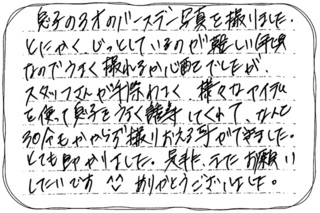 息子の3才のバースデー写真を撮りました。
とにかく、じっとしているのが難しい年頃
なのでうまく撮れるか心配でしたが、
スタッフさんが手際よく、様々なアイテム
を使って息子をうまく誘導してくれて、なんと
30分もかからず撮りおえる事ができました。
とても助かりました。是非、またお願い
したいです^^ ありがとうございました。